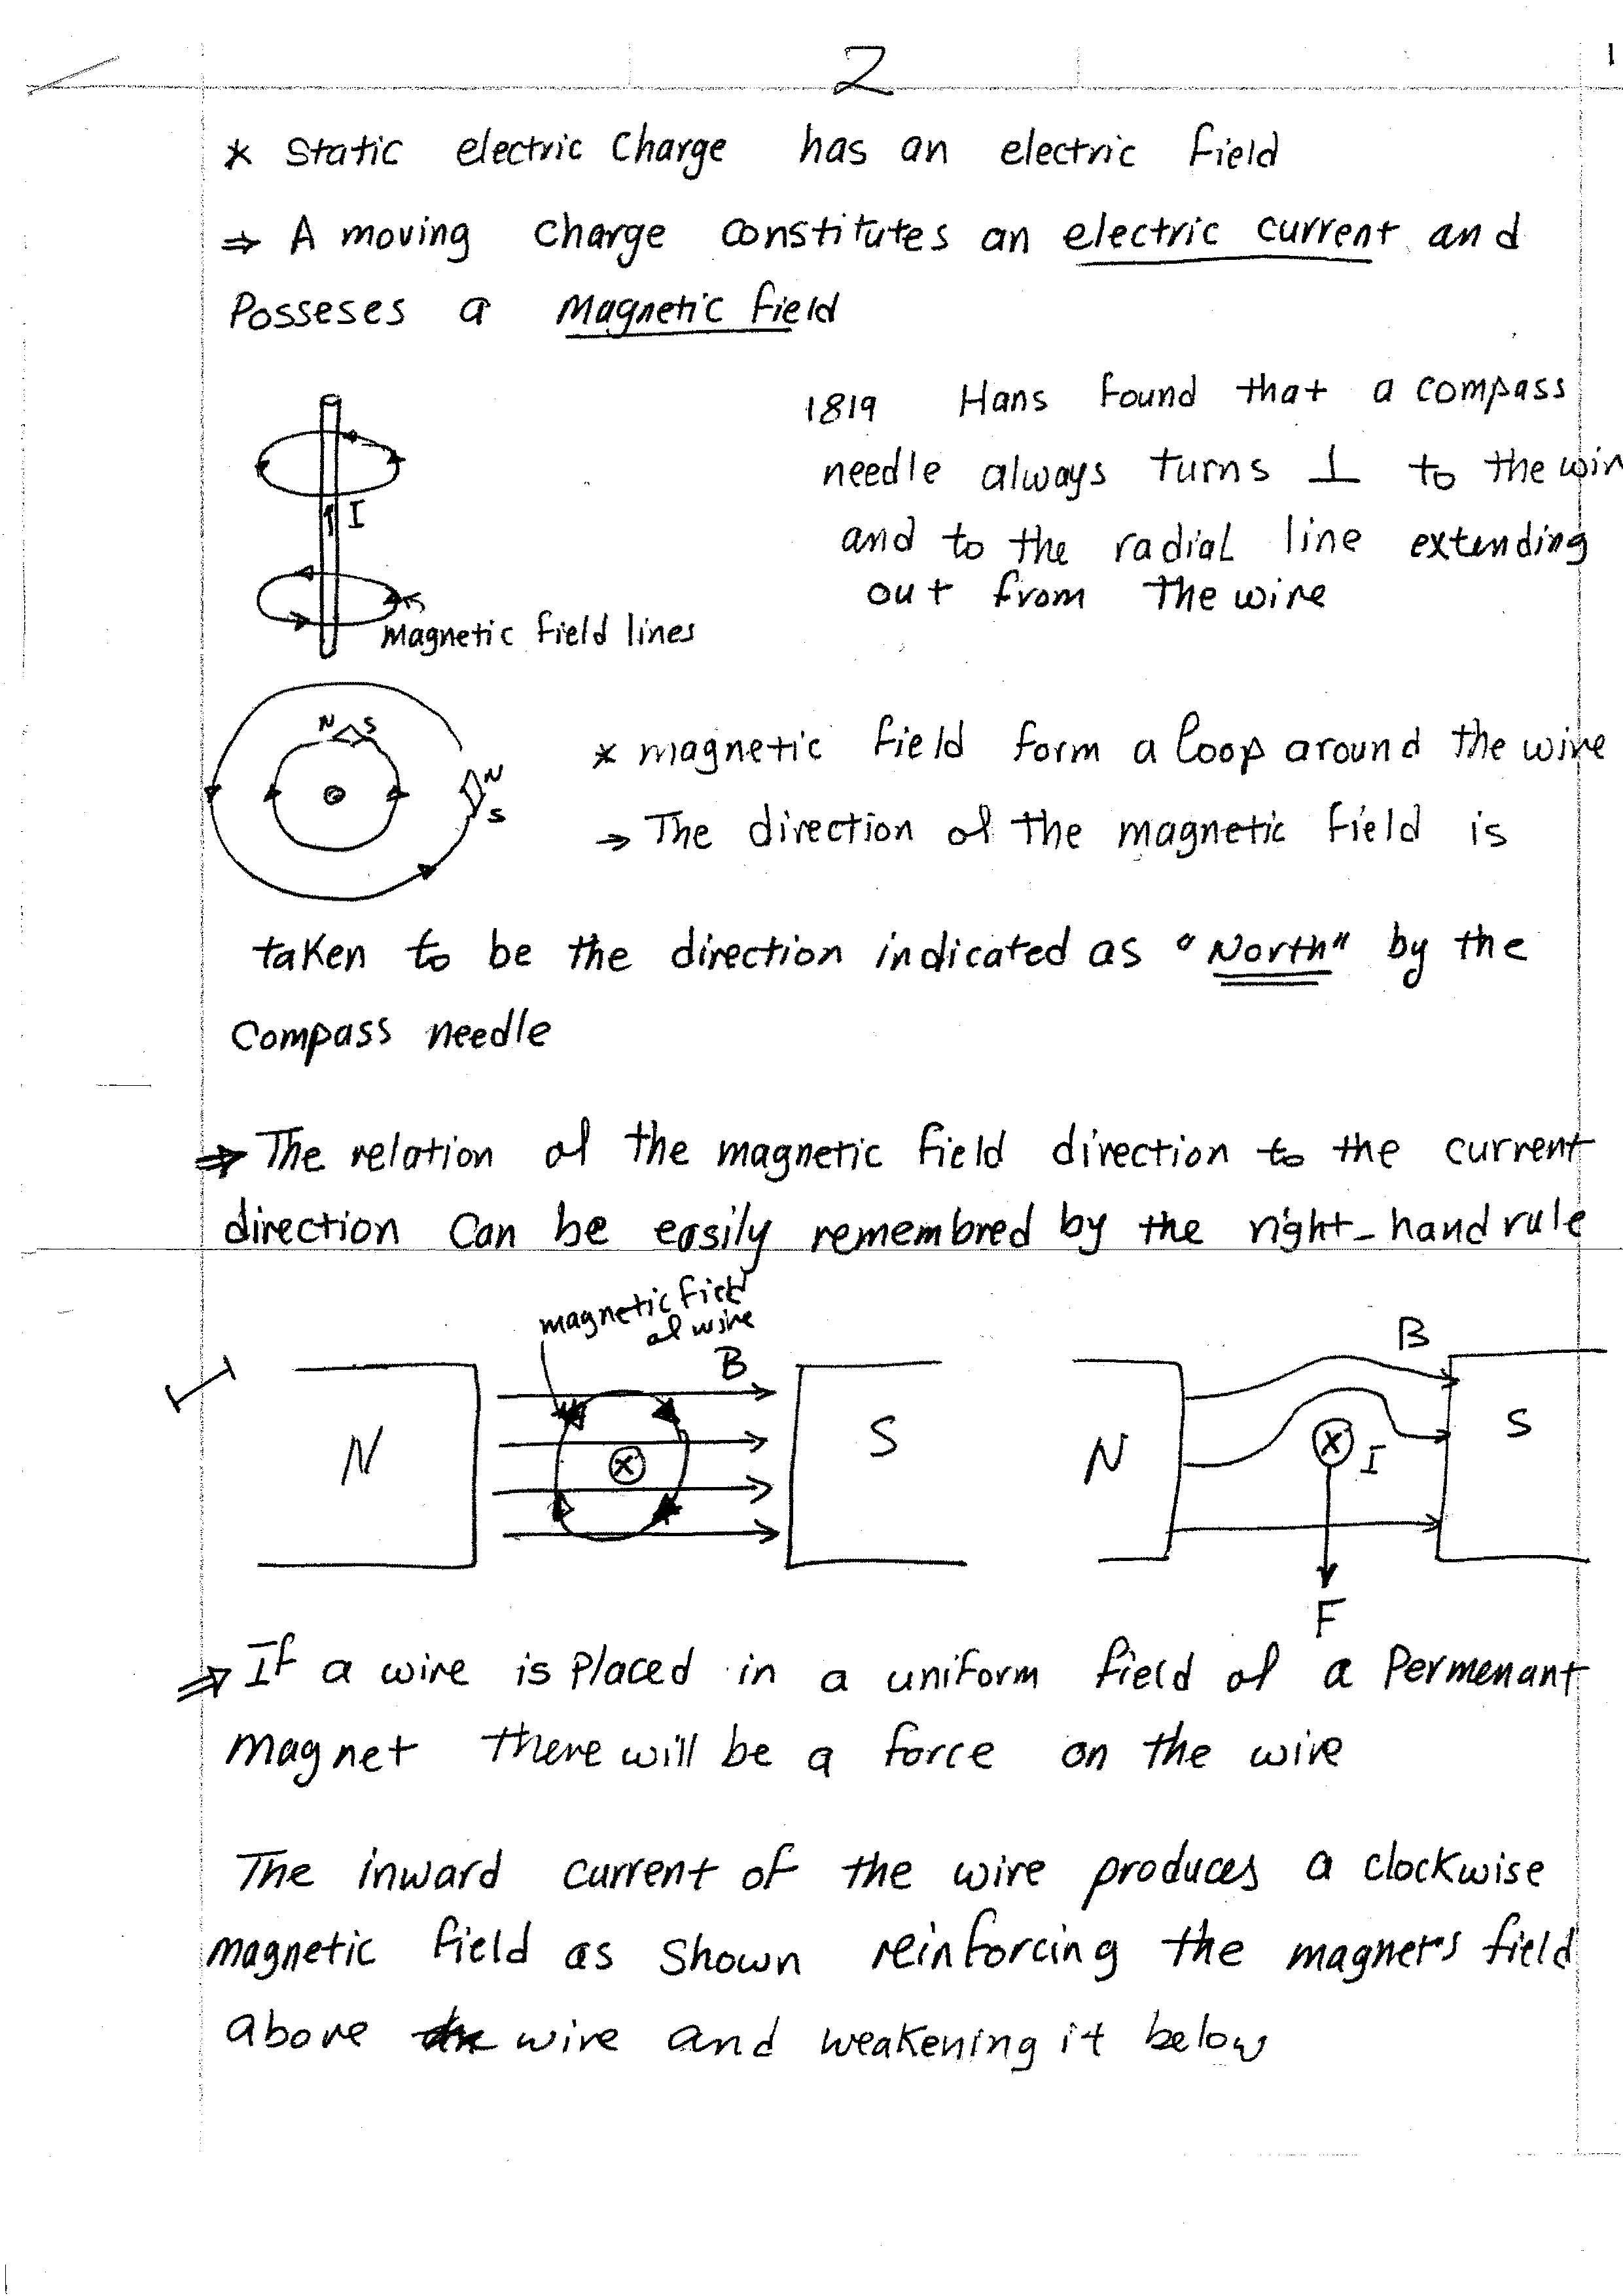 2
1
* Static electric Charge has an electric field
⇒ A moving Charge constitutes an electric current and
Posseses a Magnetic field
1819 Hans found that a compass
needle always turns ⊥ to the wir
and to the radial line extending
out from the wire
I
magnetic field lines
N S
N
S
* magnetic field form a loop around the wire
→ The direction of the magnetic field is
taken to be the direction indicated as "North" by the
Compass needle
⇒ The relation of the magnetic field direction to the current
direction Can be easily remembred by the right-hand rule
magnetic field
of wire
B
N
S
B
N
I
S
F
⇒ If a wire is Placed in a uniform field of a Permenant
magnet there will be a force on the wire
The inward current of the wire produces a clockwise
magnetic field as shown reinforcing the magnet's field
above wire and weakening it below